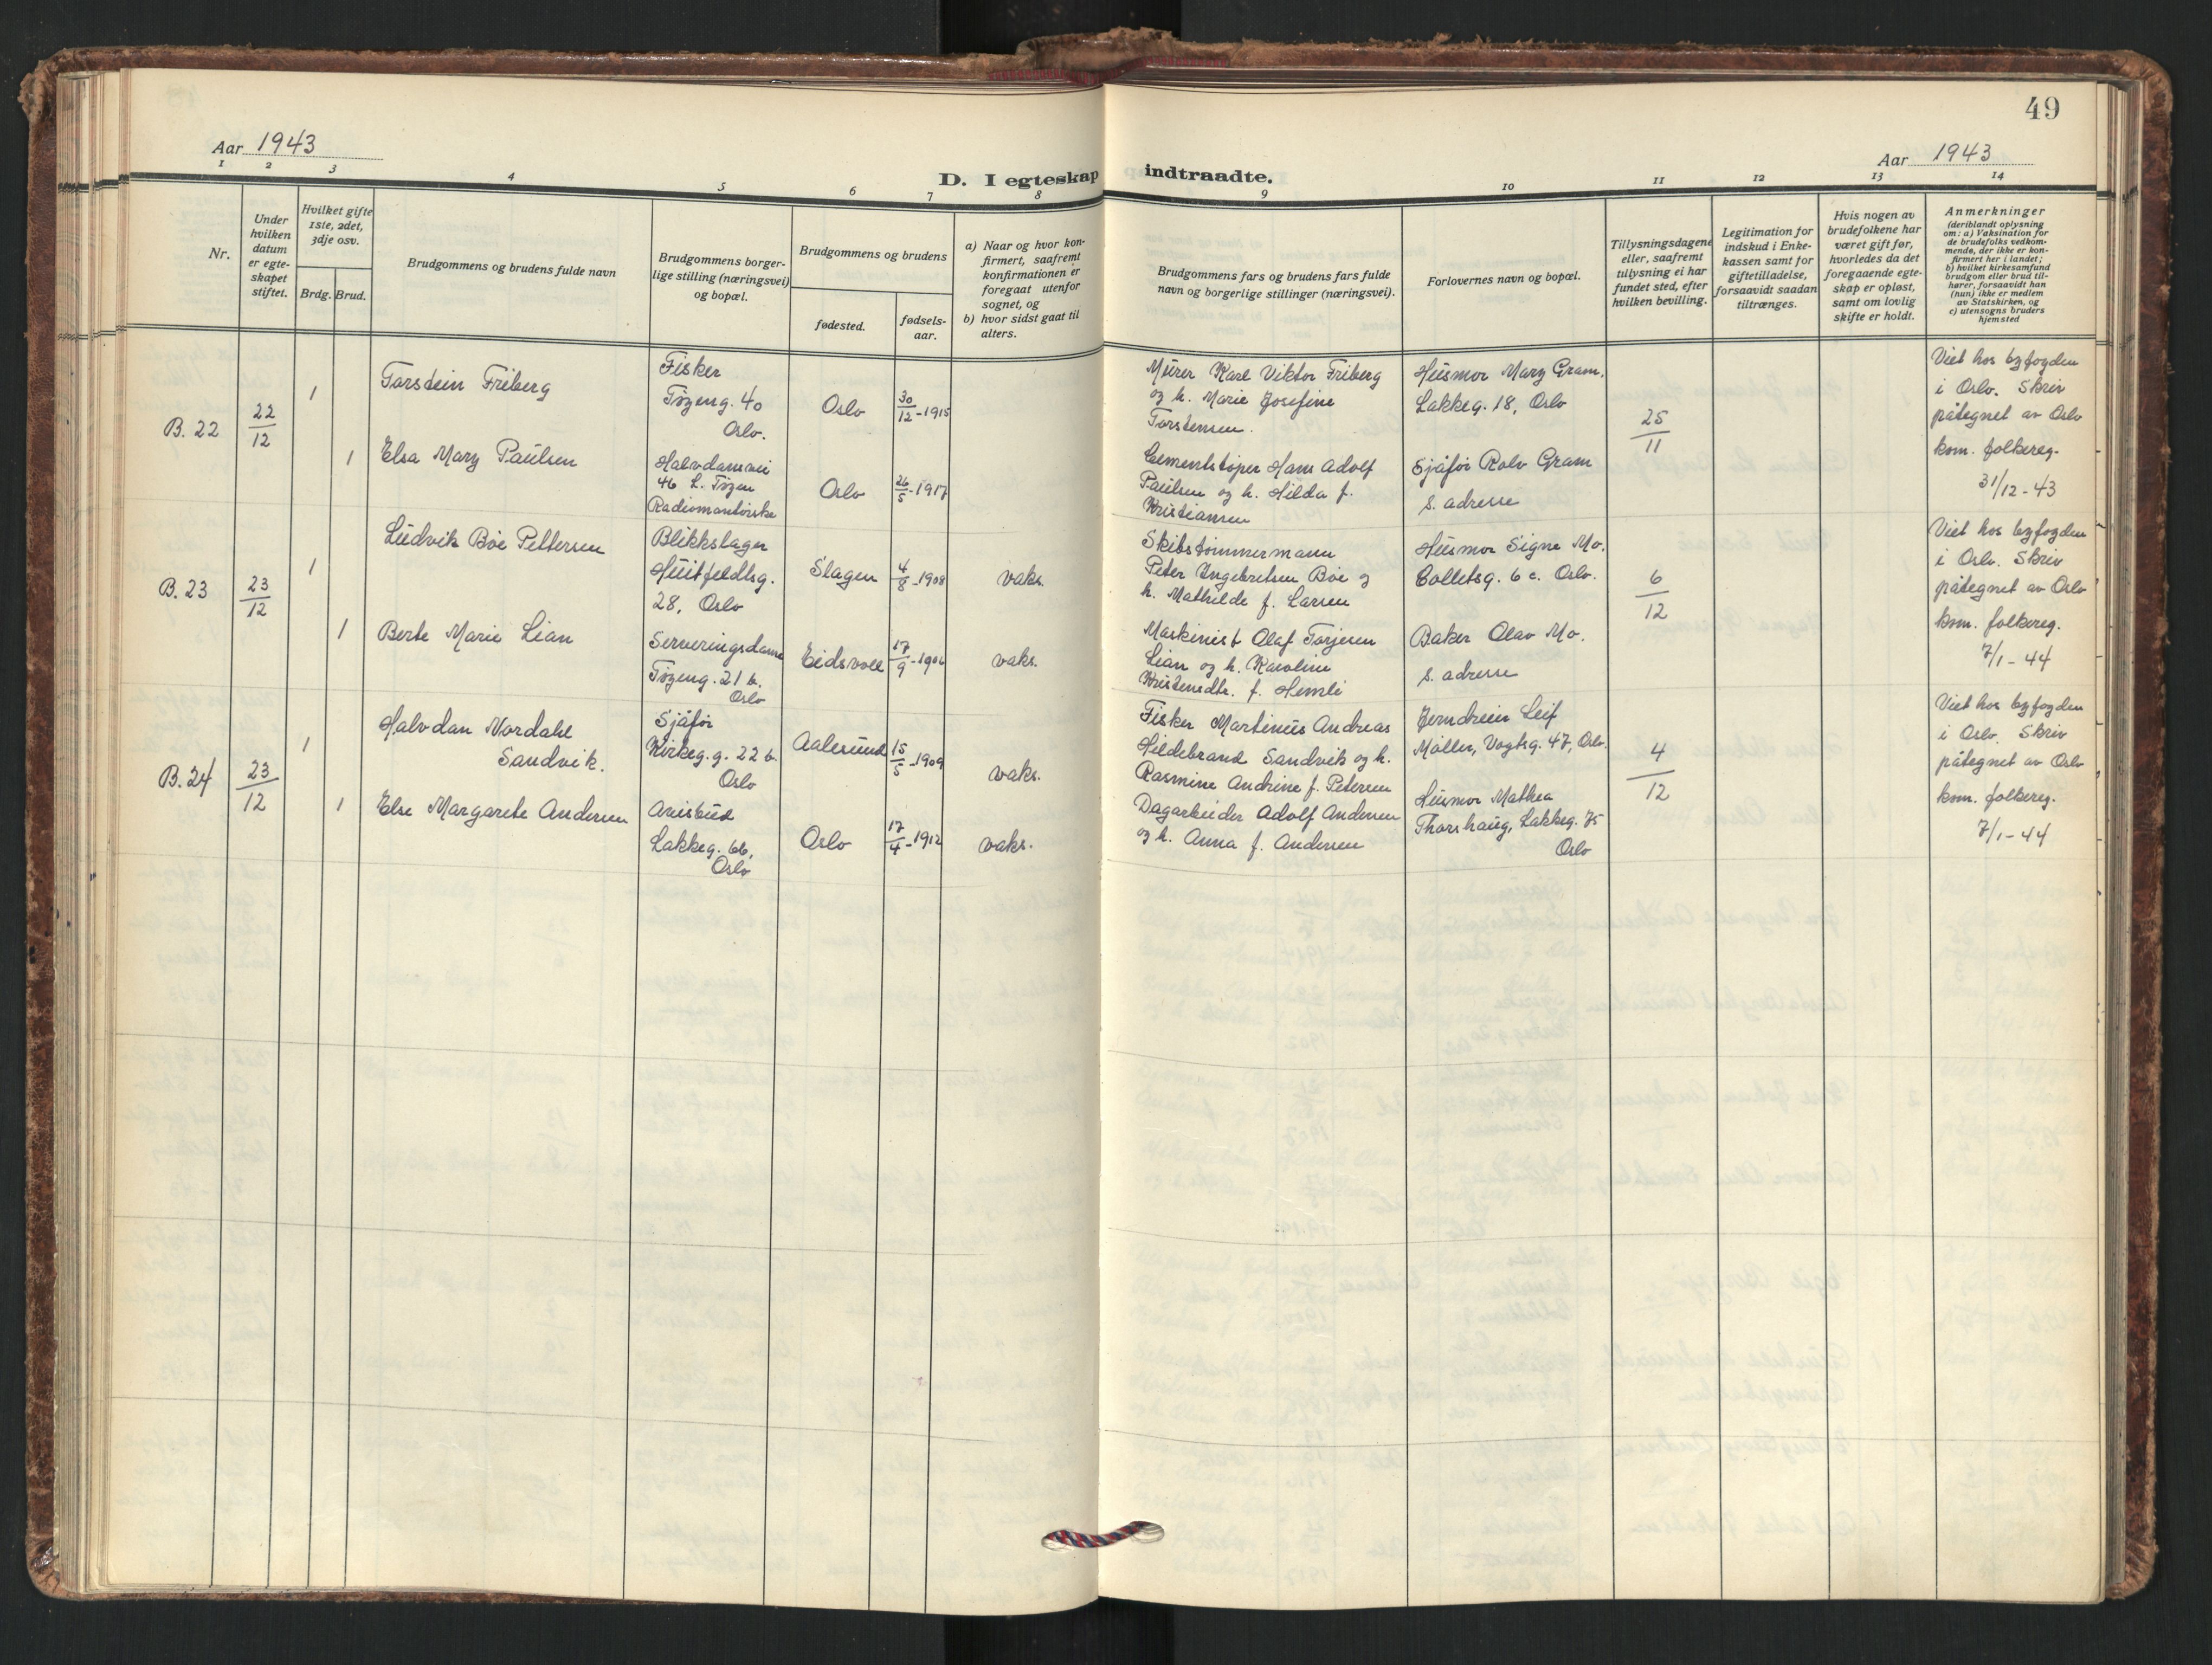 49
Aar 1943
Aar 1943
D. I egteskap indtraadte.
1 2 3 4 5 6 7 8 9 10 11 12 13 14
Nr.
Under
hvilken
datum
er egte-
skapet
stiftet.
Hvilket gifte
1ste, 2det,
3dje osv.
Brdg. Brud.
Brudgommens og brudens fulde navn
Brudgommens borger-
lige stilling (næringsvei)
og bopæl.
Brudgommens og brudens
fødested.
fødsels-
aar.
a) Naar og hvor kon-
firmert, saafremt
konfirmationen er
foregaat utenfor
sognet, og
b) hvor sidst gaat til
alters.
Brudgommens fars og brudens fars fulde
navn og borgerlige stillinger (næringsvei).
Forlovernes navn og bopæl.
Tillysningsdagene
eller, saafremt
tillysning ei har
fundet sted, efter
hvilken bevilling.
Legitimation for
indskud i Enke-
kassen samt for
giftetilladelse,
forsaavidt saadan
tiltrænges.
Hvis nogen av
brudefolkene har
været gift før,
hvorledes da det
foregaaende egte-
skap er opløst,
samt om lovlig
skifte er holdt.
Anmerkninger
(deriblandt oplysning
om: a) Vaksination for
de brudefolks vedkom-
mende, der ikke er kon-
firmert her i landet;
b) hvilket kirkesamfund
brudgom eller brud til-
hører, forsaavidt han
(hun) ikke er medlem
av Statskirken, og
c) utensogns bruders
hjemsted
B. 22
22/12
1
Torstein Friberg
Fisker
Tøyeng. 40
Oslo.
Oslo
30/12-1915
Murer Karl Viktor Friberg
og h. Marie Josefine
Torstensen.
Husmor Mary Gram.
Lakkeg. 18, Oslo
25/11
Viet hos byfogden
i Oslo. Skriv
påtegnet av Oslo
kom. folkereg.
31/12-43
1
Elsa Mary Paulsen
Halvdansvei
46 L. Tøyen
Radiomontørske
Oslo
26/5-1917
Cementstøper Hans Adolf
Paulsen og h. Hilda f.
Kristiansen
Sjåfør Rolv Gram
s. adresse
B. 23
23/12
1
Ludvik Bøe Pettersen
Blikkslager
Huitfeldtsg.
28, Oslo
Slagen
4/8-1908
vaks.
Skibstømmermann
Peter Ingebretsen Bøe og
h. Mathilde f. Larsen
Husmor Signe Mo.
Colletsg. 6 c. Oslo.
6/12
Viet hos byfogden
i Oslo. Skriv
påtegnet av Oslo
kom. folkereg.
7/1-44
1
Berte Marie Lian
Serveringsdame
Tøyeng. 21 b.
Oslo
Eidsvoll
17/9-1906
vaks.
Maskinist Olaf Torjesen
Lian og h. Karoline
Kristensdtr. f. Hemli
Baker Olav Mo.
s. adresse
B. 24
23/12
1
Halvdan Nordahl
Sandvik.
Sjåfør
Kirkeg. g. 22 b.
Oslo
Aalesund
15/5-1909
vaks.
Fisker Martinus Andreas
Hildebrand Sandvik og h.
Rasmine Andrine f. Petersen
Jerndreier Leif
Møller, Vogtsg. 47, Oslo.
4/12
Viet hos byfogden
i Oslo. Skriv
påtegnet av Oslo
kom. folkereg.
7/1-44
1
Else Margarete Andersen
Avisbud
Lakkeg. 66,
Oslo
Oslo
17/4-1912
vaks.
Dagarbeider Adolf Andersen
og h. Anna f. Andersen
Husmor Mathea
Thorshaug, Lakkeg. 75
Oslo